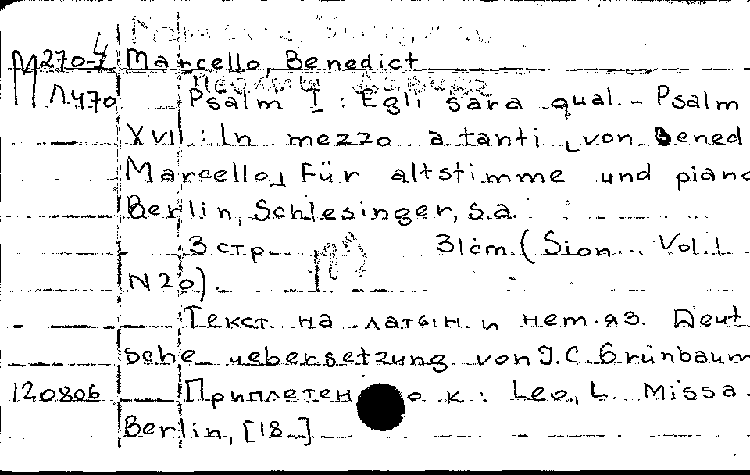 M270-4 Marcello, Benedict
Л470 Psalm I : Egli sara qual - Psalm
XVII : In mezzo a tanti, von Bened
Marcello, Für altstimme und piano
Berlin, Schlesinger, s.a.
3 стр 31cm. (Sion... Vol.1
N 20).
Текст на латын. и нем. яз. Deut
sche uebersetzung von J.C. Grünbaum
120806 Приплетен о к: Leo, L. Missa.
Berlin, [18-]